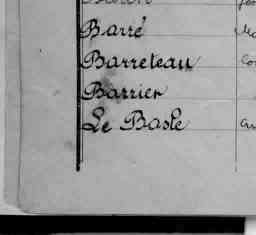 Barré
Barreteau
Barrier
Le Basle